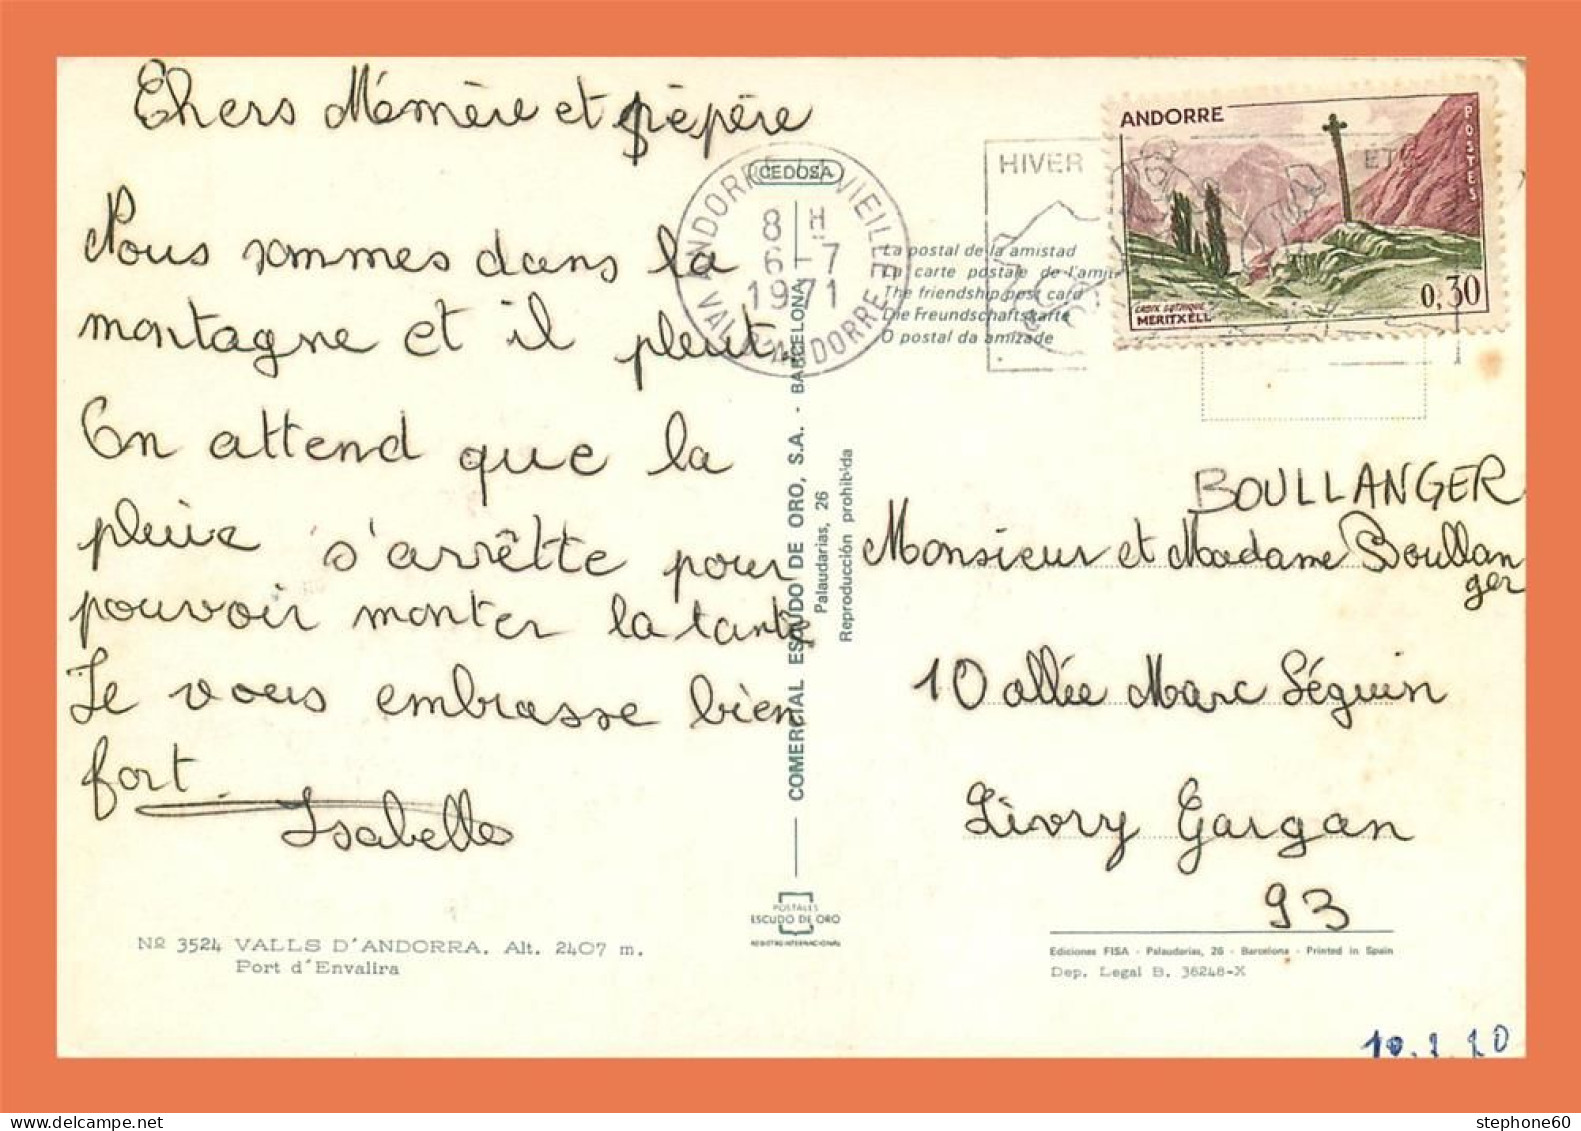 Chers Mémère et pépère
Nous sommes dans la
montagne et il pleut.
On attend que la
pluie s'arrêtte pour
pouvoir monter la tante
Je vous embrasse bien
fort.
Isabelle
Nº 3524 VALLS D'ANDORRA. Alt. 2407 m.
Port d'Envalira
CEDOSA
ANDORRE LA VIEILLE
8 H
6 - 7
1971
VALS D'ANDORRE
COMERCIAL ESCUDO DE ORO, S.A. - BARCELONA
Palaudarias, 26
Reproducción prohibida
POSTALES
ESCUDO DE ORO
REGISTRO INTERNACIONAL
La postal de la amistad
La carte postale de l'ami
The friendship post card
Die Freundschaftskarte
O postal da amizade
HIVER
ÉTÉ
ANDORRE
POSTES
0,30
CROIX GOTHIQUE
MERITXELL
BOULLANGER
Monsieur et Madame Boullan
ger
10 allée Marc Séguin
Livry Gargan
93
Ediciones FISA - Palaudarias, 26 - Barcelona - Printed in Spain
Dep. Legal B. 36248-X
stephone60